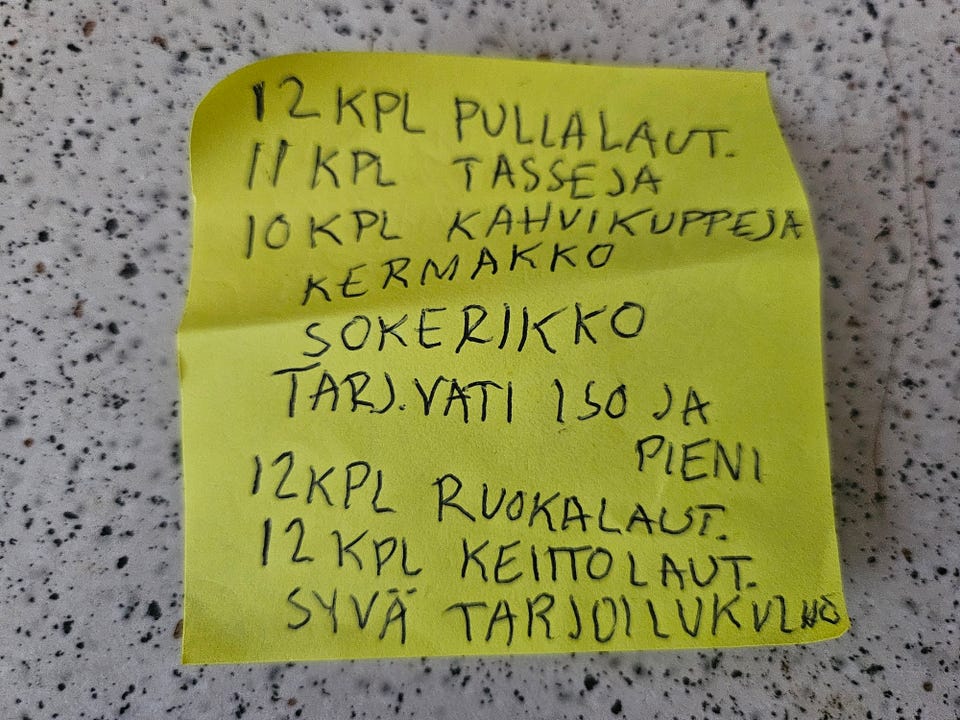 12 KPL PULLALAUT.
11 KPL TASSEJA
10 KPL KAHVIKUPPEJA
KERMAKKO
SOKERIKKO
TARJ.VATI ISO JA
PIENI
12 KPL RUOKALAUT.
12 KPL KEITTOLAUT.
SYVÄ TARJOILUKULHO